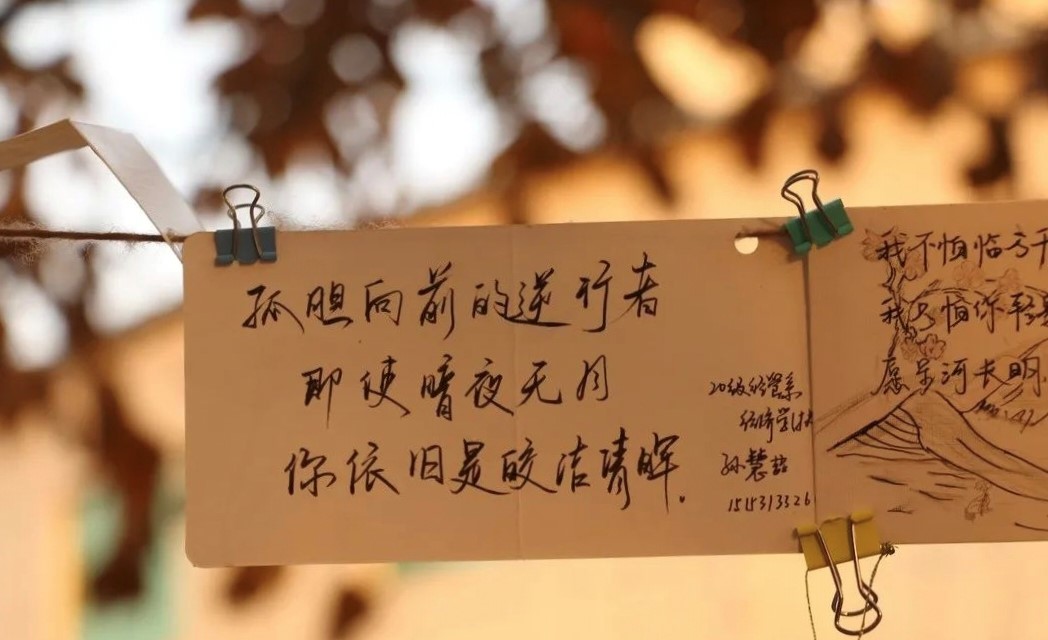 孤胆向前的逆行者
即使暗夜无月
你依旧是皎洁清晖.
20级经管系
经济学
孙慧喆
我不怕临
我只怕你轻
愿星河长明